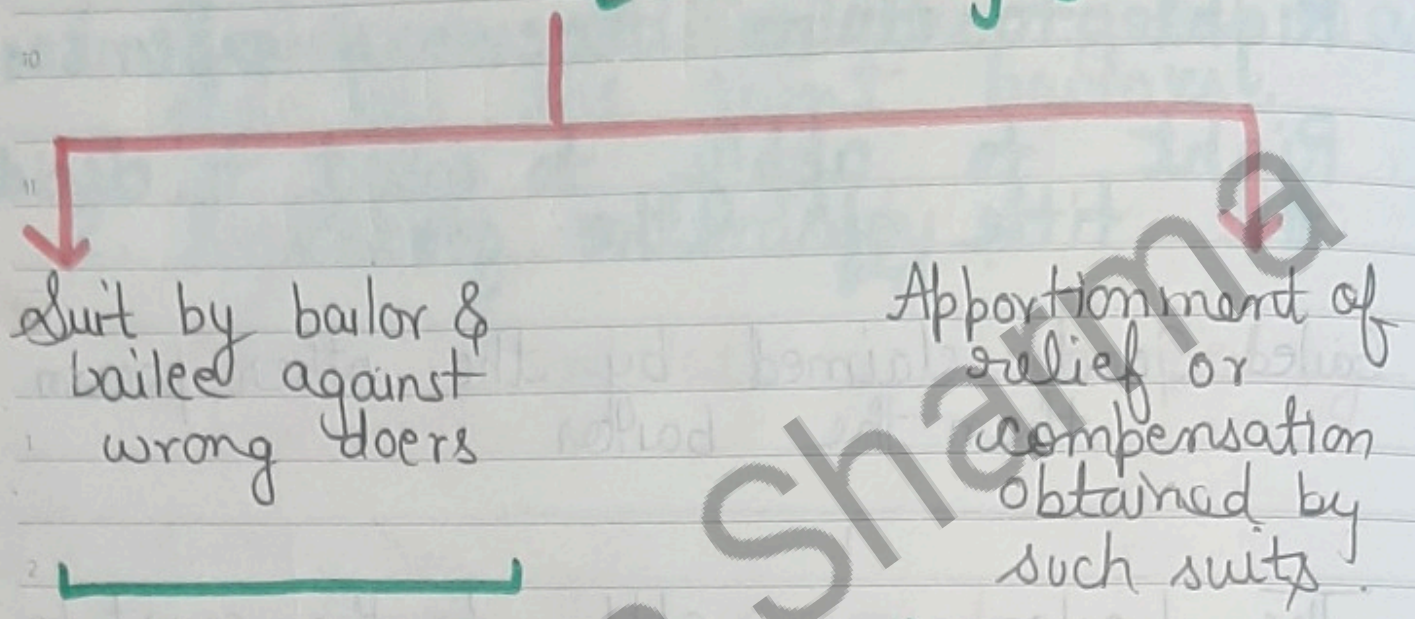 10
11
Suit by bailor &
bailee against
wrong doers
1
2
Apportionment of
relief or
compensation
obtained by
such suits.
Sharma